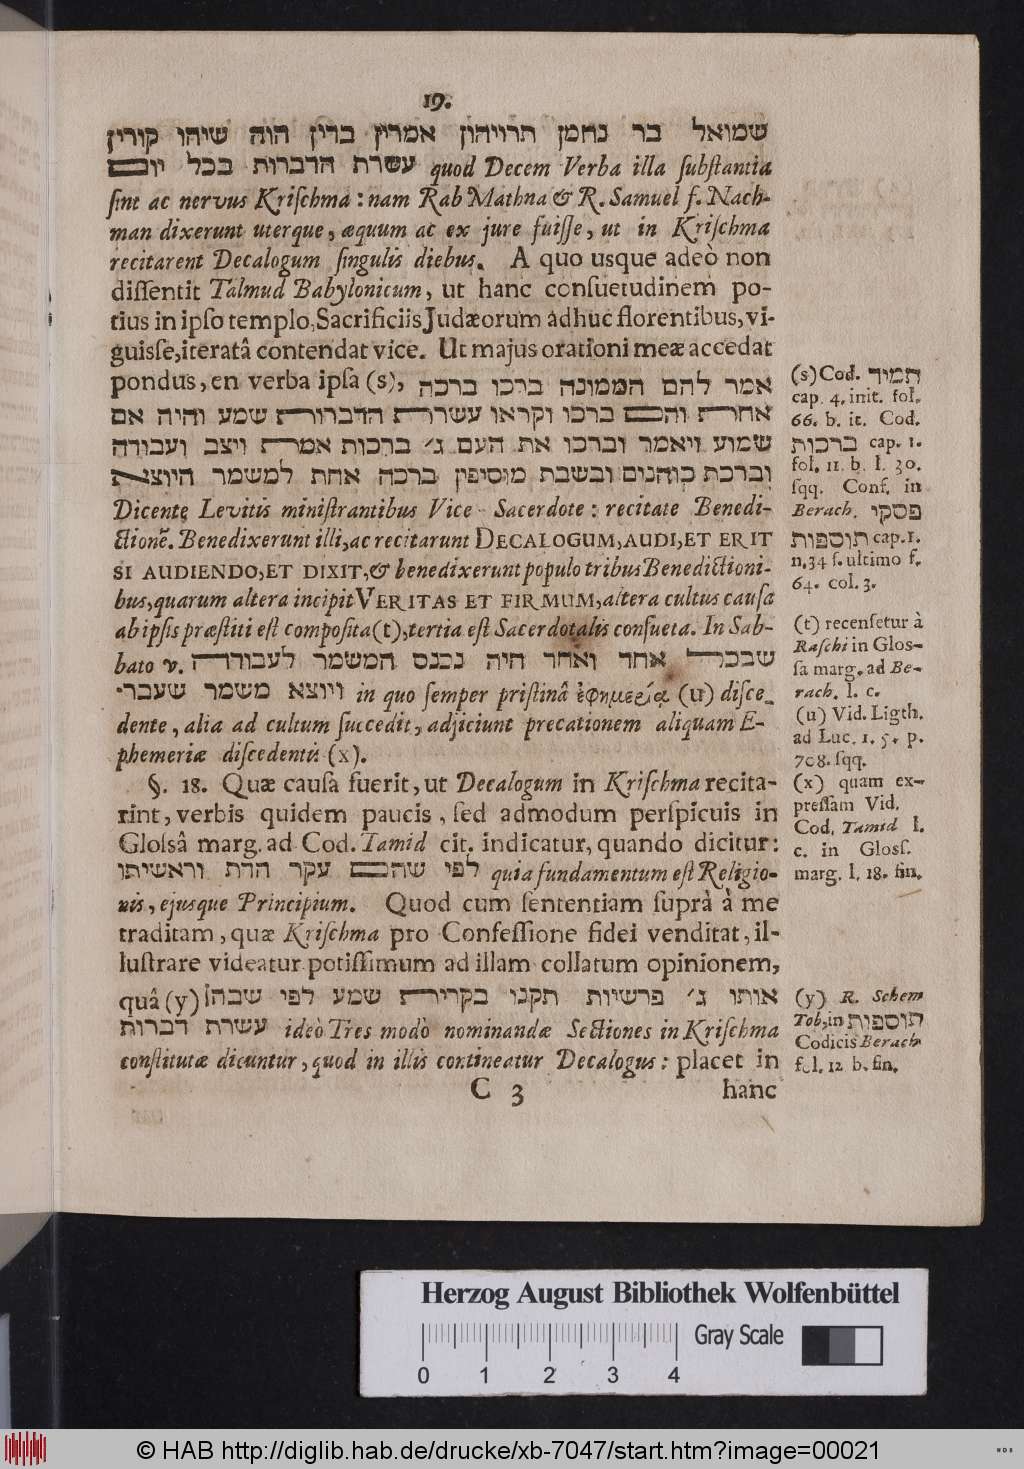 19.
שמואל בר נחמן תרויהון אמרין בדין הוה שיהו קורין
עשרת הדברות בכל יום quod Decem Verba illa ſubſtantia
ſint ac nervus Kriſchma: nam Rab Mathna & R. Samuel f. Nach-
man dixerunt uterque, æquum ac ex jure fuiſſe, ut in Kriſchma
recitarent Decalogum ſingulis diebus. A quo usque adeò non
diſſentit Talmud Babylonicum, ut hanc conſuetudinem po-
tius in ipſo templo, Sacrificiis Judæorum adhuc florentibus, vi-
guisſe, iteratâ contendat vice. Ut majus orationi meæ accedat
pondus, en verba ipſa (s), אמר להם הממונה ברכו ברכה
אחרת והם ברכו וקראו עשרת הדברות שמע והיה אם
שמוע ויאמר וברכו את העם ג׳ ברכות אמת ויצב ועבודה
וברכת כוהנים ובשבת מוסיפין ברכה אחת למשמר היוצא
Dicente Levitis miniſtrantibus Vice-Sacerdote: recitate Benedi-
ctionē. Benedixerunt illi, ac recitarunt DECALOGUM, AUDI, ET ERIT
SI AUDIENDO, ET DIXIT, & benedixerunt populo tribus Benedictioni-
bus, quarum altera incipit VERITAS ET FIRMUM, altera cultus cauſa
ab ipſis præſtiti eſt compoſita (t), tertia eſt Sacerdotalis conſueta. In Sab-
bato v. שבכל אחד ואחד היה נכנס המשמר לעבודה
ויוצא משמר שעבר in quo ſemper priſtinâ ἐφημερία (u) diſce-
dente, alia ad cultum ſuccedit, adjiciunt precationem aliquam E-
phemeriæ diſcedentis (x).
§. 18. Quæ cauſa fuerit, ut Decalogum in Kriſchma recita-
rint, verbis quidem paucis, ſed admodum perſpicuis in
Gloſsâ marg. ad Cod. Tamid cit. indicatur, quando dicitur:
לפי שהם עקר הדת וראשיתו quia fundamentum eſt Religio-
nis, ejusque Principium. Quod cum ſententiam ſuprà à me
traditam, quæ Kriſchma pro Confeſſione fidei venditat, il-
luſtrare videatur potiſſimum ad illam collatum opinionem,
quâ (y) אותו ג׳ פרשיות תקנו בקרירת שמע לפי שבהן
עשרת דברות ideò Tres modò nominandæ Sectiones in Kriſchma
conſtitutæ dicuntur, quod in illis contineatur Decalogus: placet in
C 3 hanc
(s) Cod. תמיד
cap. 4. init. fol.
66. b. it. Cod.
ברכות cap. 1.
fol. 11. b. l. 30.
ſqq. Conf. in
Berach. פסקי
תוספות cap. 1.
n. 34 ſ. ultimo f.
64. col. 3.
(t) recenſetur à
Raſchi in Gloſ-
ſa marg. ad Be-
rach. l. c.
(u) Vid. Ligth.
ad Luc. 1. 5. p.
708. ſqq.
(x) quam ex-
preſſam Vid.
Cod. Tamid l.
c. in Gloſſ.
marg. l. 18. fin.
(y) R. Schem
Tob, in תוספות
Codicis Berach
fol. 12 b. fin.
Herzog August Bibliothek Wolfenbüttel
Gray Scale
0 1 2 3 4
© HAB http://diglib.hab.de/drucke/xb-7047/start.htm?image=00021